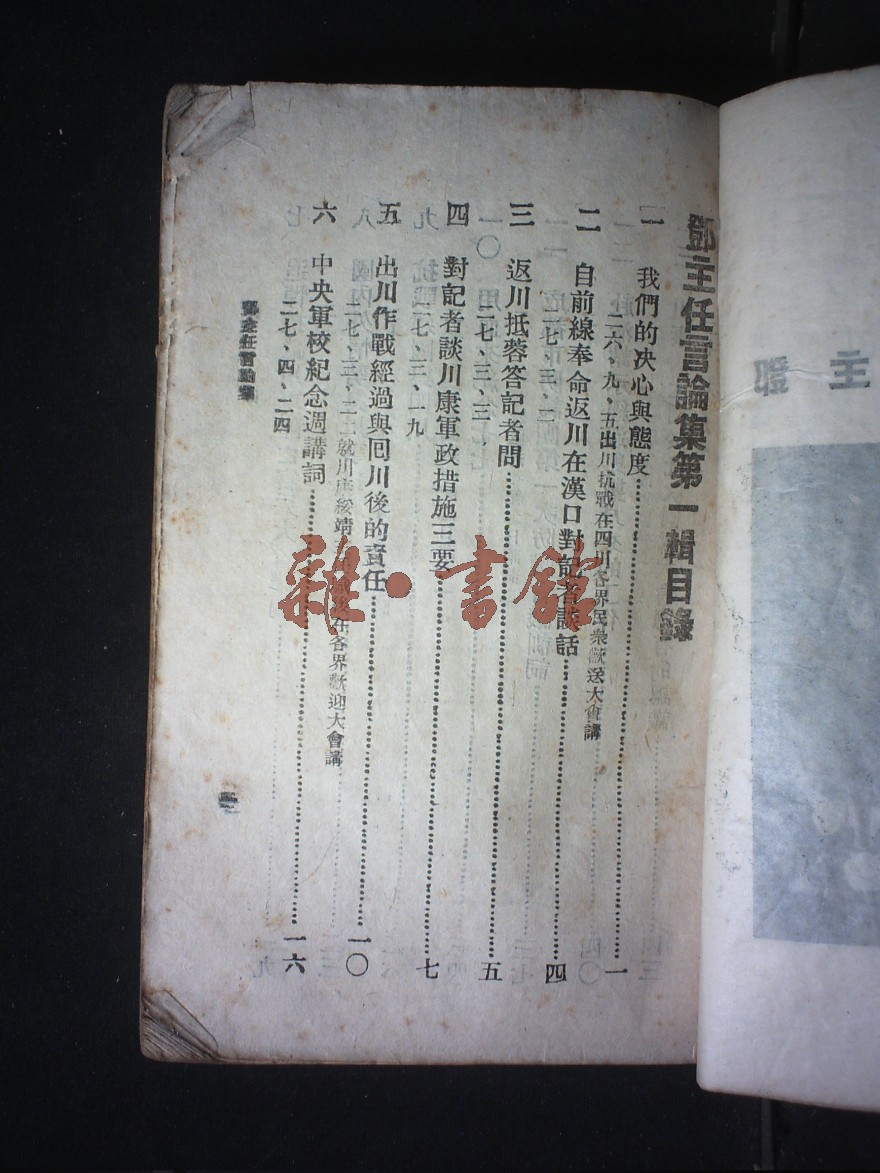 鄧主任言論集第一輯目錄
一 我們的決心與態度 一
二六、九、五出川抗戰在四川各界民衆歡送大會講
二 自前線奉命返川在漢口對記者談話 四
二七、三、二
三 返川抵蓉答記者問 五
二七、三、三、
四 對記者談川康軍政措施三要 七
二七、三、一九
五 出川作戰經過與囘川後的責任 一〇
二七、三、二二就川康綏靖後在各界歡迎大會講
六 中央軍校紀念週講詞 一六
二七、四、二四
鄧主任言論集
一
主
雜·書館